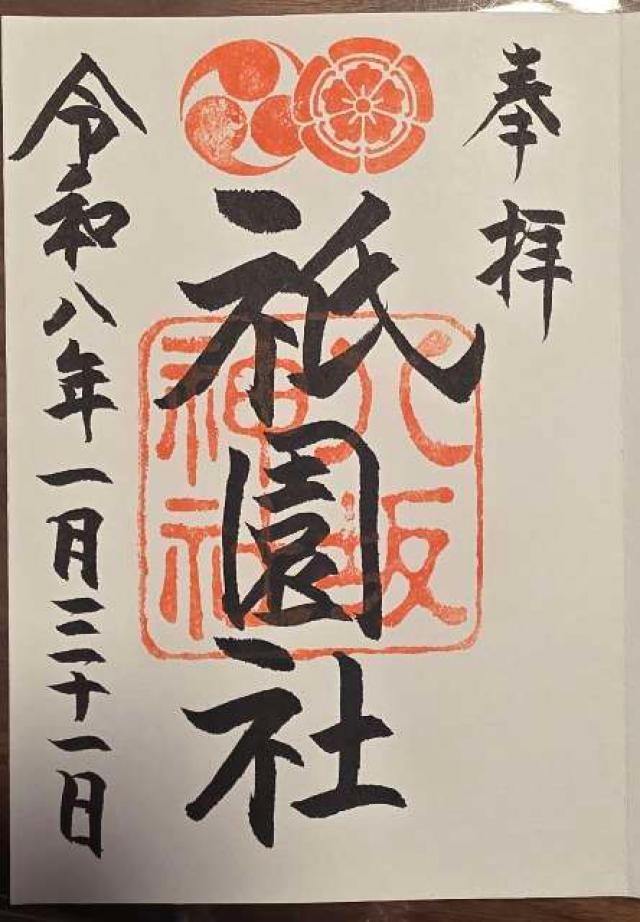 奉拝
祇園社
八坂
神社
令和八年一月三十一日